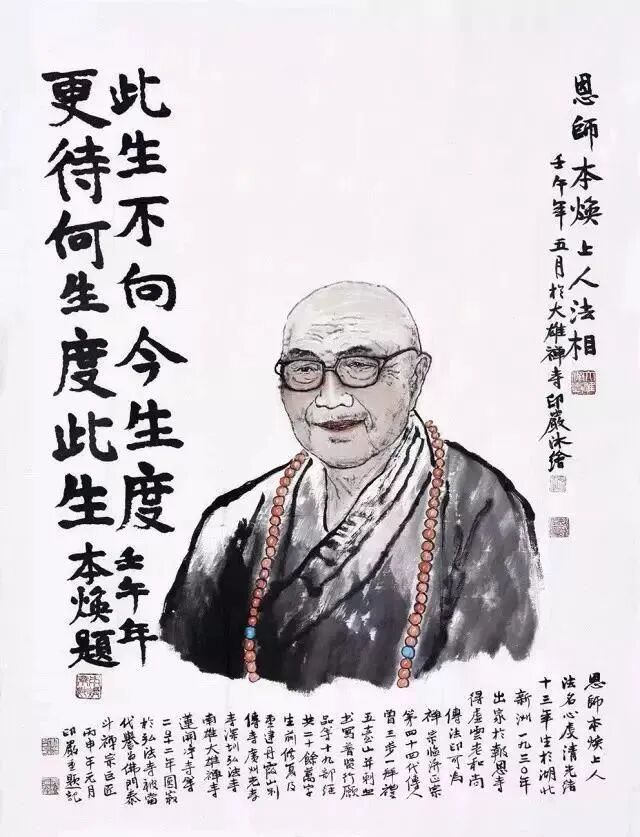 恩師本煥上人法相
壬午年五月於大雄禪寺印嚴沐繪
此生不向今生度 壬午年
更待何生度此生 本煥題
恩師本煥上人
法名心虔清光緒
十三年生於湖北
新洲一九三〇年
出家於報恩寺
得虛雲老和尚
傳法印可為
禪宗臨濟正宗
第四十四代傳人
曾三步一拜禮
五臺山并刺血
书寫普賢行願
品等十九部經
共二十餘萬字
生前修复及
重建丹霞山別
傳寺廣州光孝
寺深圳弘法寺
南雄大雄禪寺
蓮開淨寺等
二〇一二年圓寂
於弘法寺被當
代譽為佛門泰
斗禪宗巨匠
丙申年元月
印嚴重題記